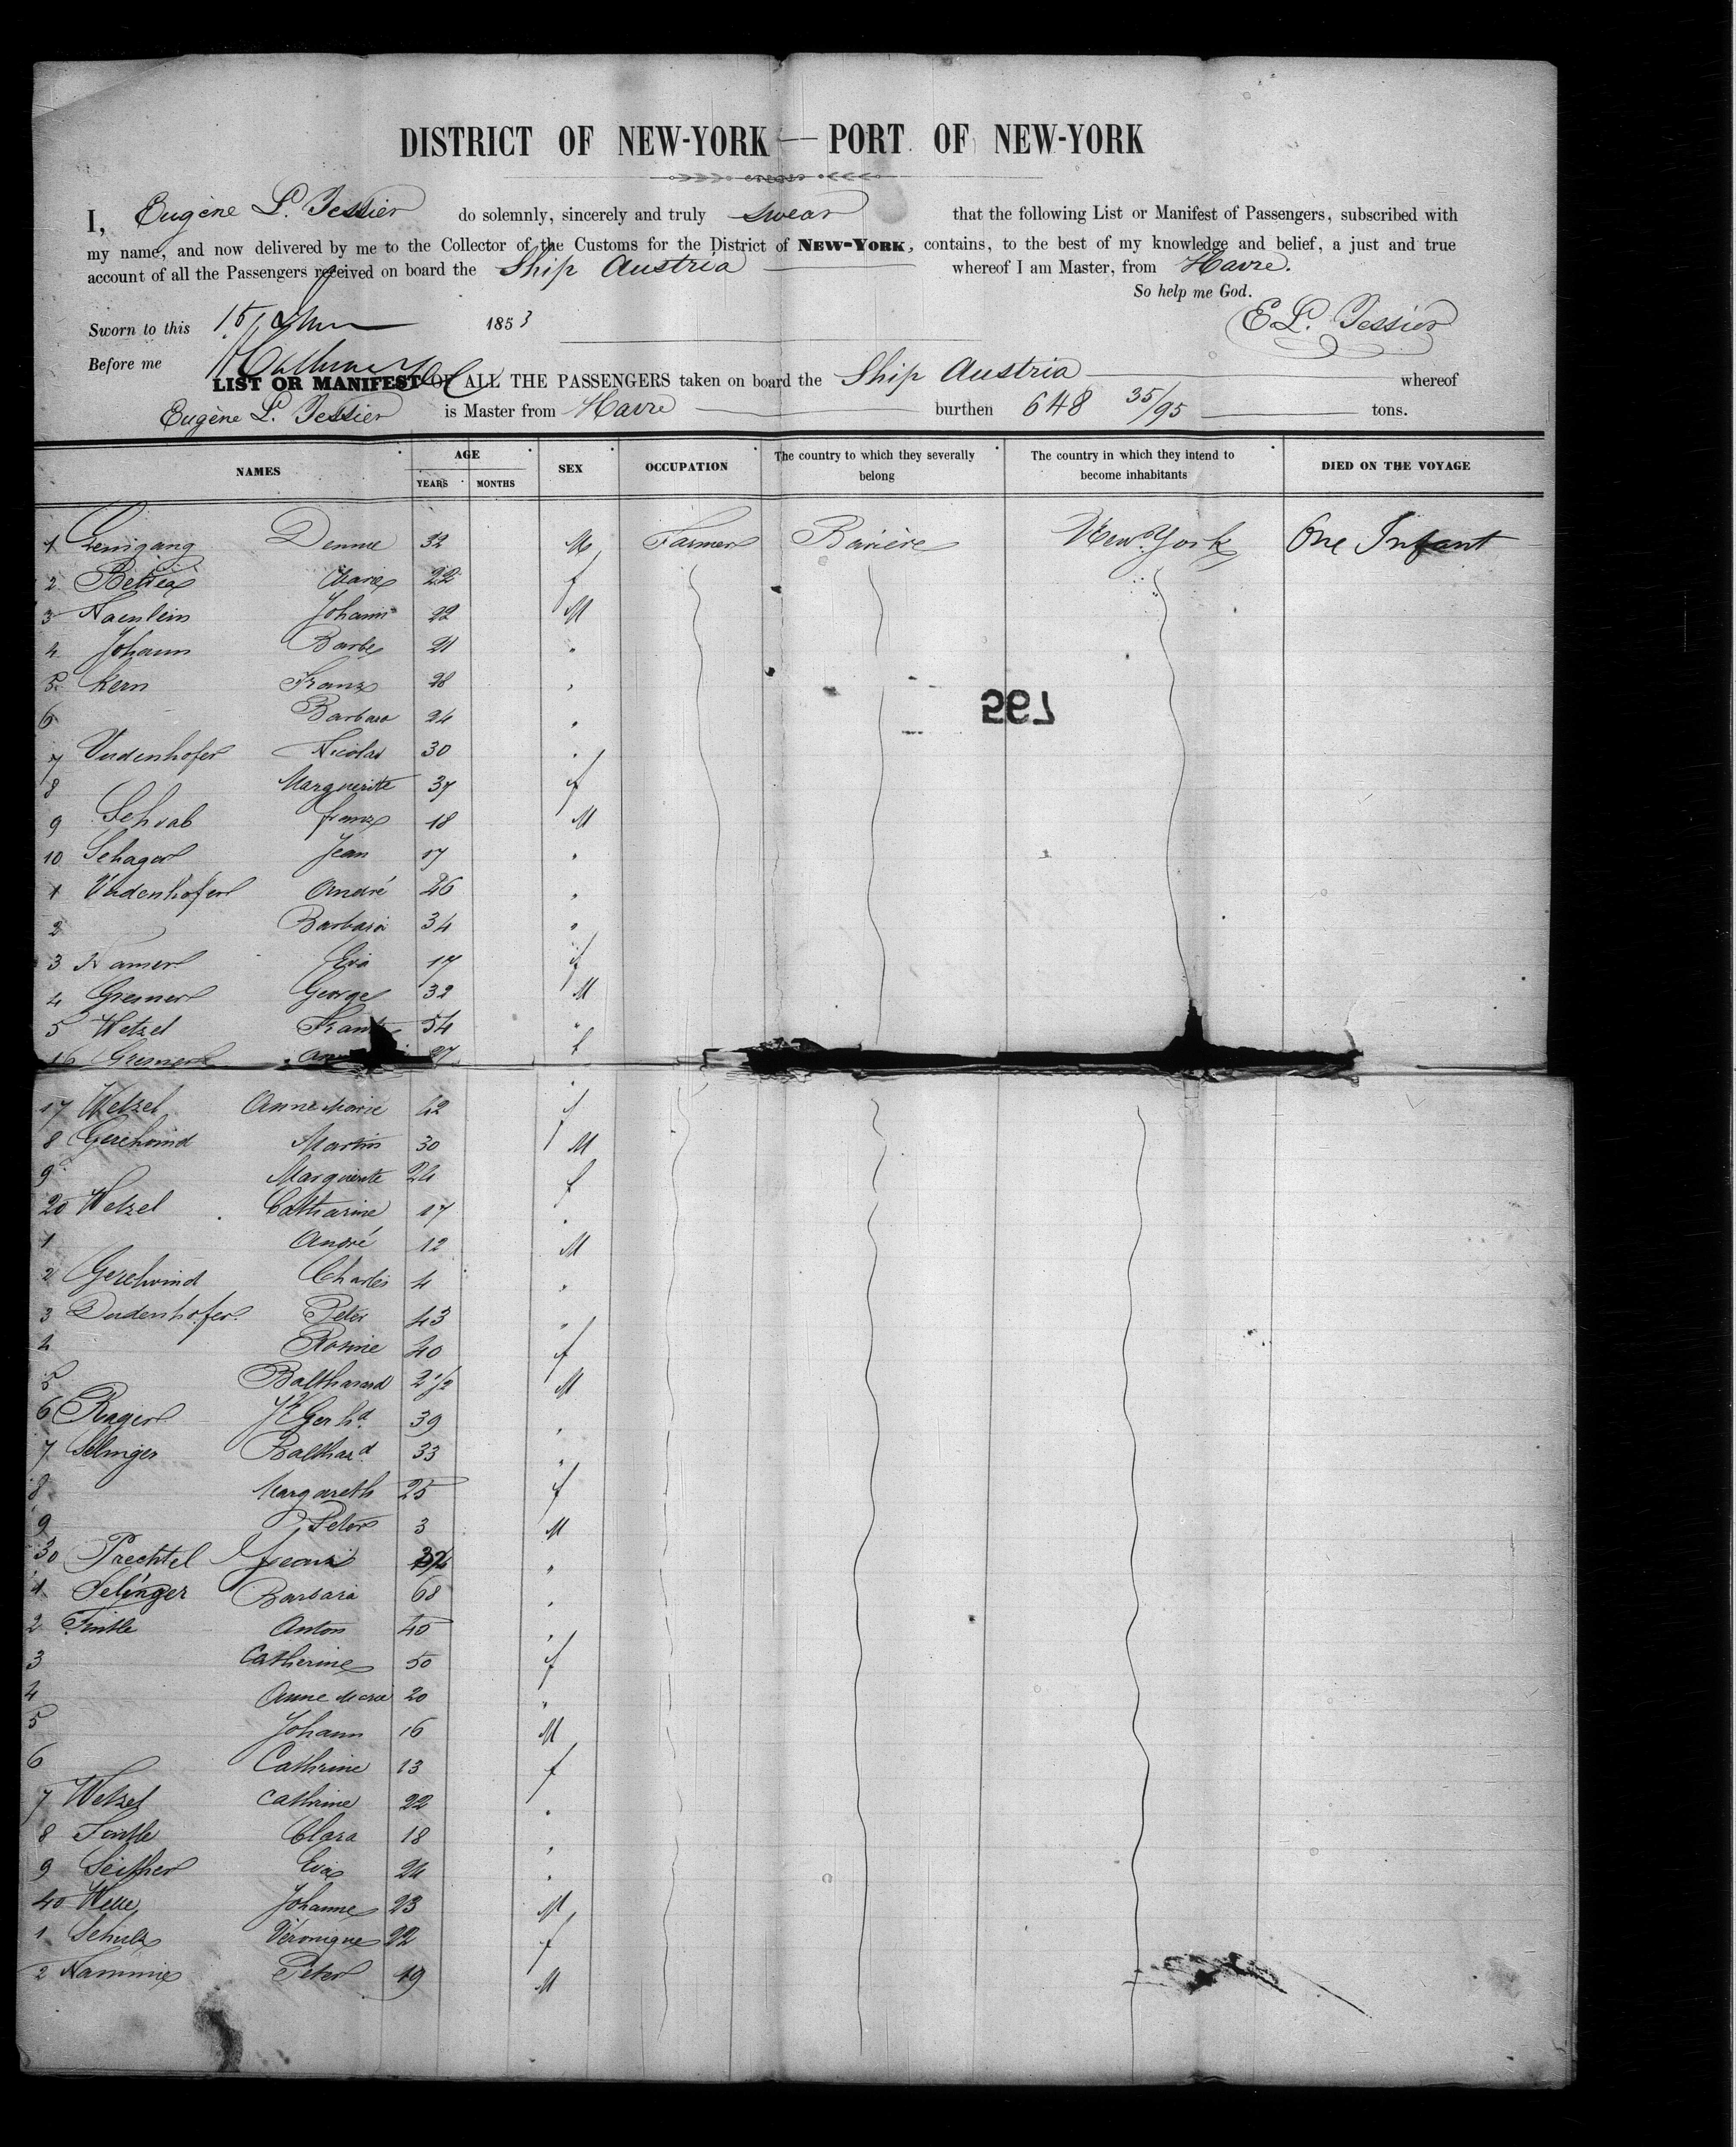 DISTRICT OF NEW-YORK — PORT OF NEW-YORK
I, Eugène L. Tessier do solemnly, sincerely and truly swear that the following List or Manifest of Passengers, subscribed with
my name, and now delivered by me to the Collector of the Customs for the District of NEW-YORK, contains, to the best of my knowledge and belief, a just and true
account of all the Passengers received on board the Ship Austria whereof I am Master, from Havre.
So help me God.
Sworn to this 15 1853 E.L. Tessier
Before me
LIST OR MANIFEST OF ALL THE PASSENGERS taken on board the Ship Austria whereof
Eugène L. Tessier is Master from Havre burthen 648 35/95 tons.
NAMES AGE YEARS MONTHS SEX OCCUPATION The country to which they severally belong The country in which they intend to become inhabitants DIED ON THE VOYAGE
1 32 M Farmer Bavière New York One Infant
2 Marie 22 f
3 Johann 22 M
4 Johann Barbe 21 "
5 Kern Franz 28 "
6 Barbara 24 "
795
7 Dudenhofer Nicolas 30 "
8 Marguerite 37 f
9 Schvab franz 18 M
10 Schager Jean 17 "
1 Dudenhofer André 26 "
2 Barbara 34 "
3 Eva 17 f
4 Gremer George 32 M
5 Wetzel Frantz 54 "
16 Gremer 27 f
17 Wetzel Anne Marie 42 f
8 Gerchwind Martin 30 M
9 Marguerite 24 f
20 Wetzel Catharine 17 "
1 André 12 M
2 Gerchwind Charles 4 "
3 Dudenhofer Peter 43 "
4 Rosine 40 f
5 Balthasard 2 1/2 M
6 Rager Jh Gerhd 39 "
7 Selinger Balthasd 33 "
8 Margareth 25 f
9 Peter 3 M
30 Paechtel "
1 Selinger Barbara 68 "
2 Tintle Anton 45 "
3 Catherine 50 f
4 Anne Marie 20 "
5 Johann 16 M
6 Cathrine 13 f
7 Wetzel Cathrine 22 "
8 Tintle Clara 18 "
9 Seither Eva 24 "
40 Johanne 23 M
1 Schulz Véronique 22 f
2 Hammie Peter 19 M